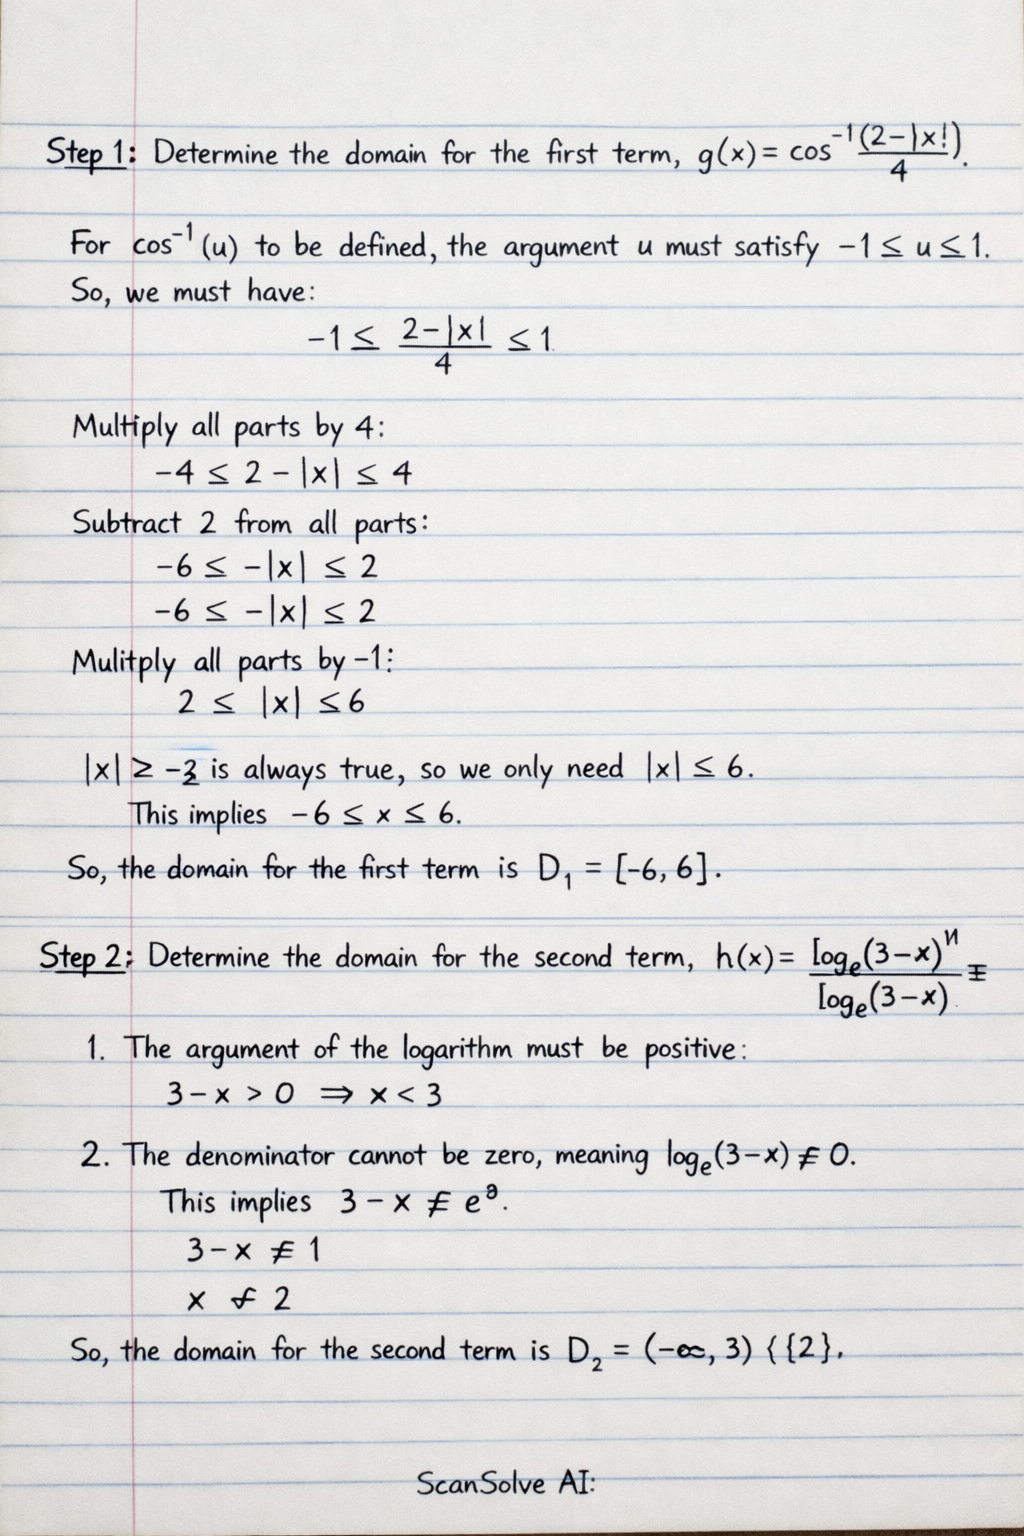 Step 1: Determine the domain for the first term, g(x) = cos⁻¹(2−|x!)/4.
For cos⁻¹(u) to be defined, the argument u must satisfy −1 ≤ u ≤ 1.
So, we must have:
−1 ≤ 2−|x|/4 ≤ 1
Multiply all parts by 4:
−4 ≤ 2 − |x| ≤ 4
Subtract 2 from all parts:
−6 ≤ −|x| ≤ 2
−6 ≤ −|x| ≤ 2
Mulitply all parts by −1:
2 ≤ |x| ≤ 6
|x| ≥ −2 is always true, so we only need |x| ≤ 6.
This implies −6 ≤ x ≤ 6.
So, the domain for the first term is D₁ = [-6, 6].
Step 2: Determine the domain for the second term, h(x) = logₑ(3−x)ᴻ/logₑ(3−x)
1. The argument of the logarithm must be positive:
3 − x > 0 ⇒ x < 3
2. The denominator cannot be zero, meaning logₑ(3−x) ≠ 0.
This implies 3 − x ≠ e⁰.
3 − x ≠ 1
x ≠ 2
So, the domain for the second term is D₂ = (−∞, 3) {{2}.
ScanSolve AI: